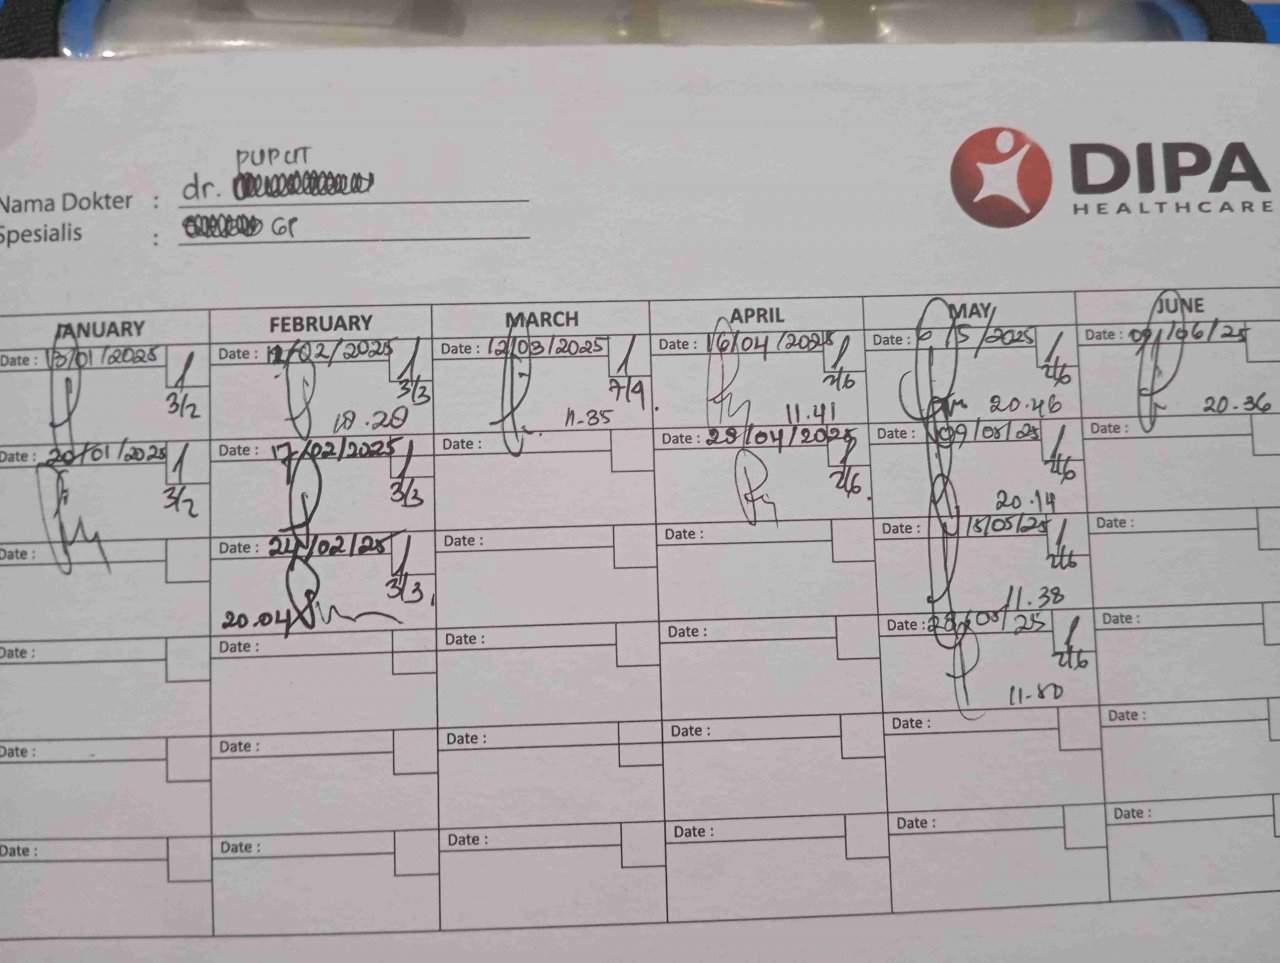 PUPUT
DIPA
HEALTHCARE
Nama Dokter : dr.
Spesialis : GP
JANUARY FEBRUARY MARCH APRIL MAY JUNE
Date : 13/01/2025 1 Date : /02/2025 1 Date : 12/03/2025 1 Date : 16/04/2025 1 Date : 6/5/2025 1 Date : 09/06/25
3/2 3/3 7/4 2/6 2/6
20.46 20.36
11.35 11.41
Date : 20/01/2025 1 Date : 17/02/2025 1 Date : Date : 28/04/2025 1 Date : 09/05/25 1 Date :
3/2 3/3 2/6 2/6
20.14
Date : Date : 24/02/25 1 Date : Date : Date : 15/05/25 1 Date :
3/3 2/6
20.04 11.38
Date : Date : Date : Date : Date : 28/05/25 1 Date :
2/6
Date : Date : Date : Date : Date : Date :
Date : Date : Date : Date : Date : Date :